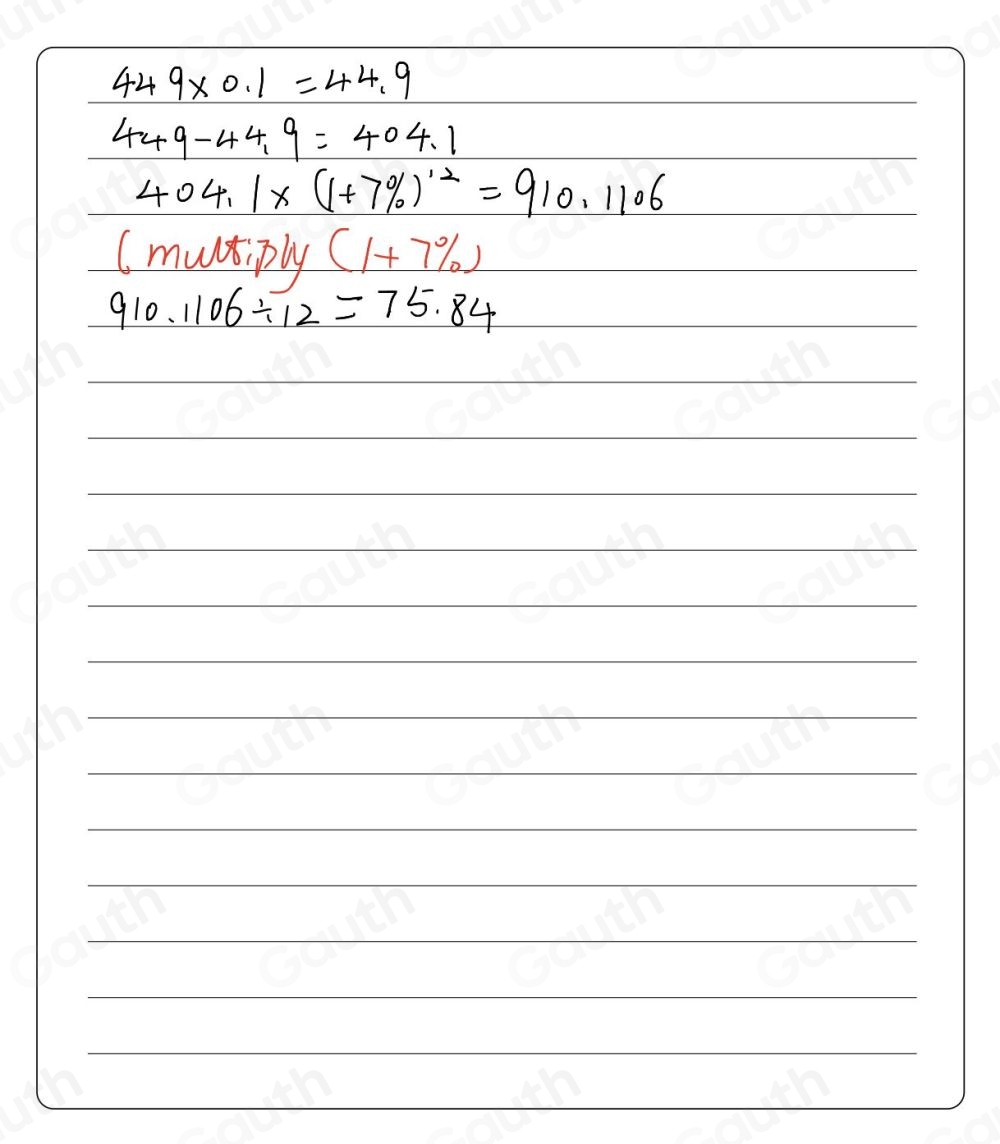 449×0.1 =44.9
449-44.9= 404.1
404.1×(1+7%)¹² =910.1106
(multiply (1+7%)
910.1106÷12=75.84